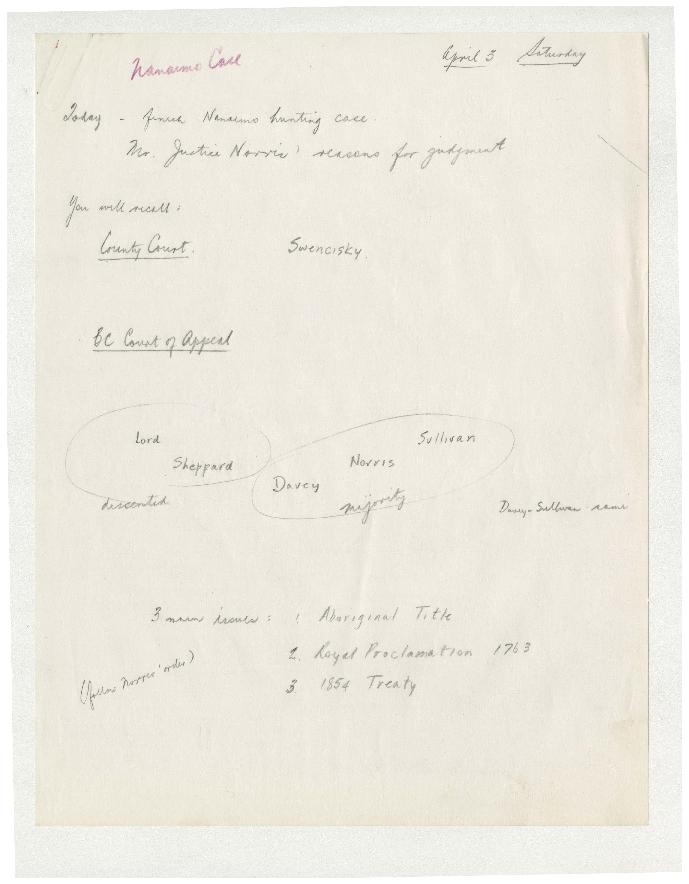 Nanaimo Case
April 3 Saturday
Today - finish Nanaimo hunting case.
Mr. Justice Norris' reasons for judgment
You will recall:
County Court. Swencisky.
BC Court of Appeal
Lord Sullivan
Sheppard Norris
Davey
descented majority Davey-Sullivan same
3 main issues: 1 Aboriginal Title
2. Royal Proclamation 1763
(follow Norris' order)
3. 1854 Treaty